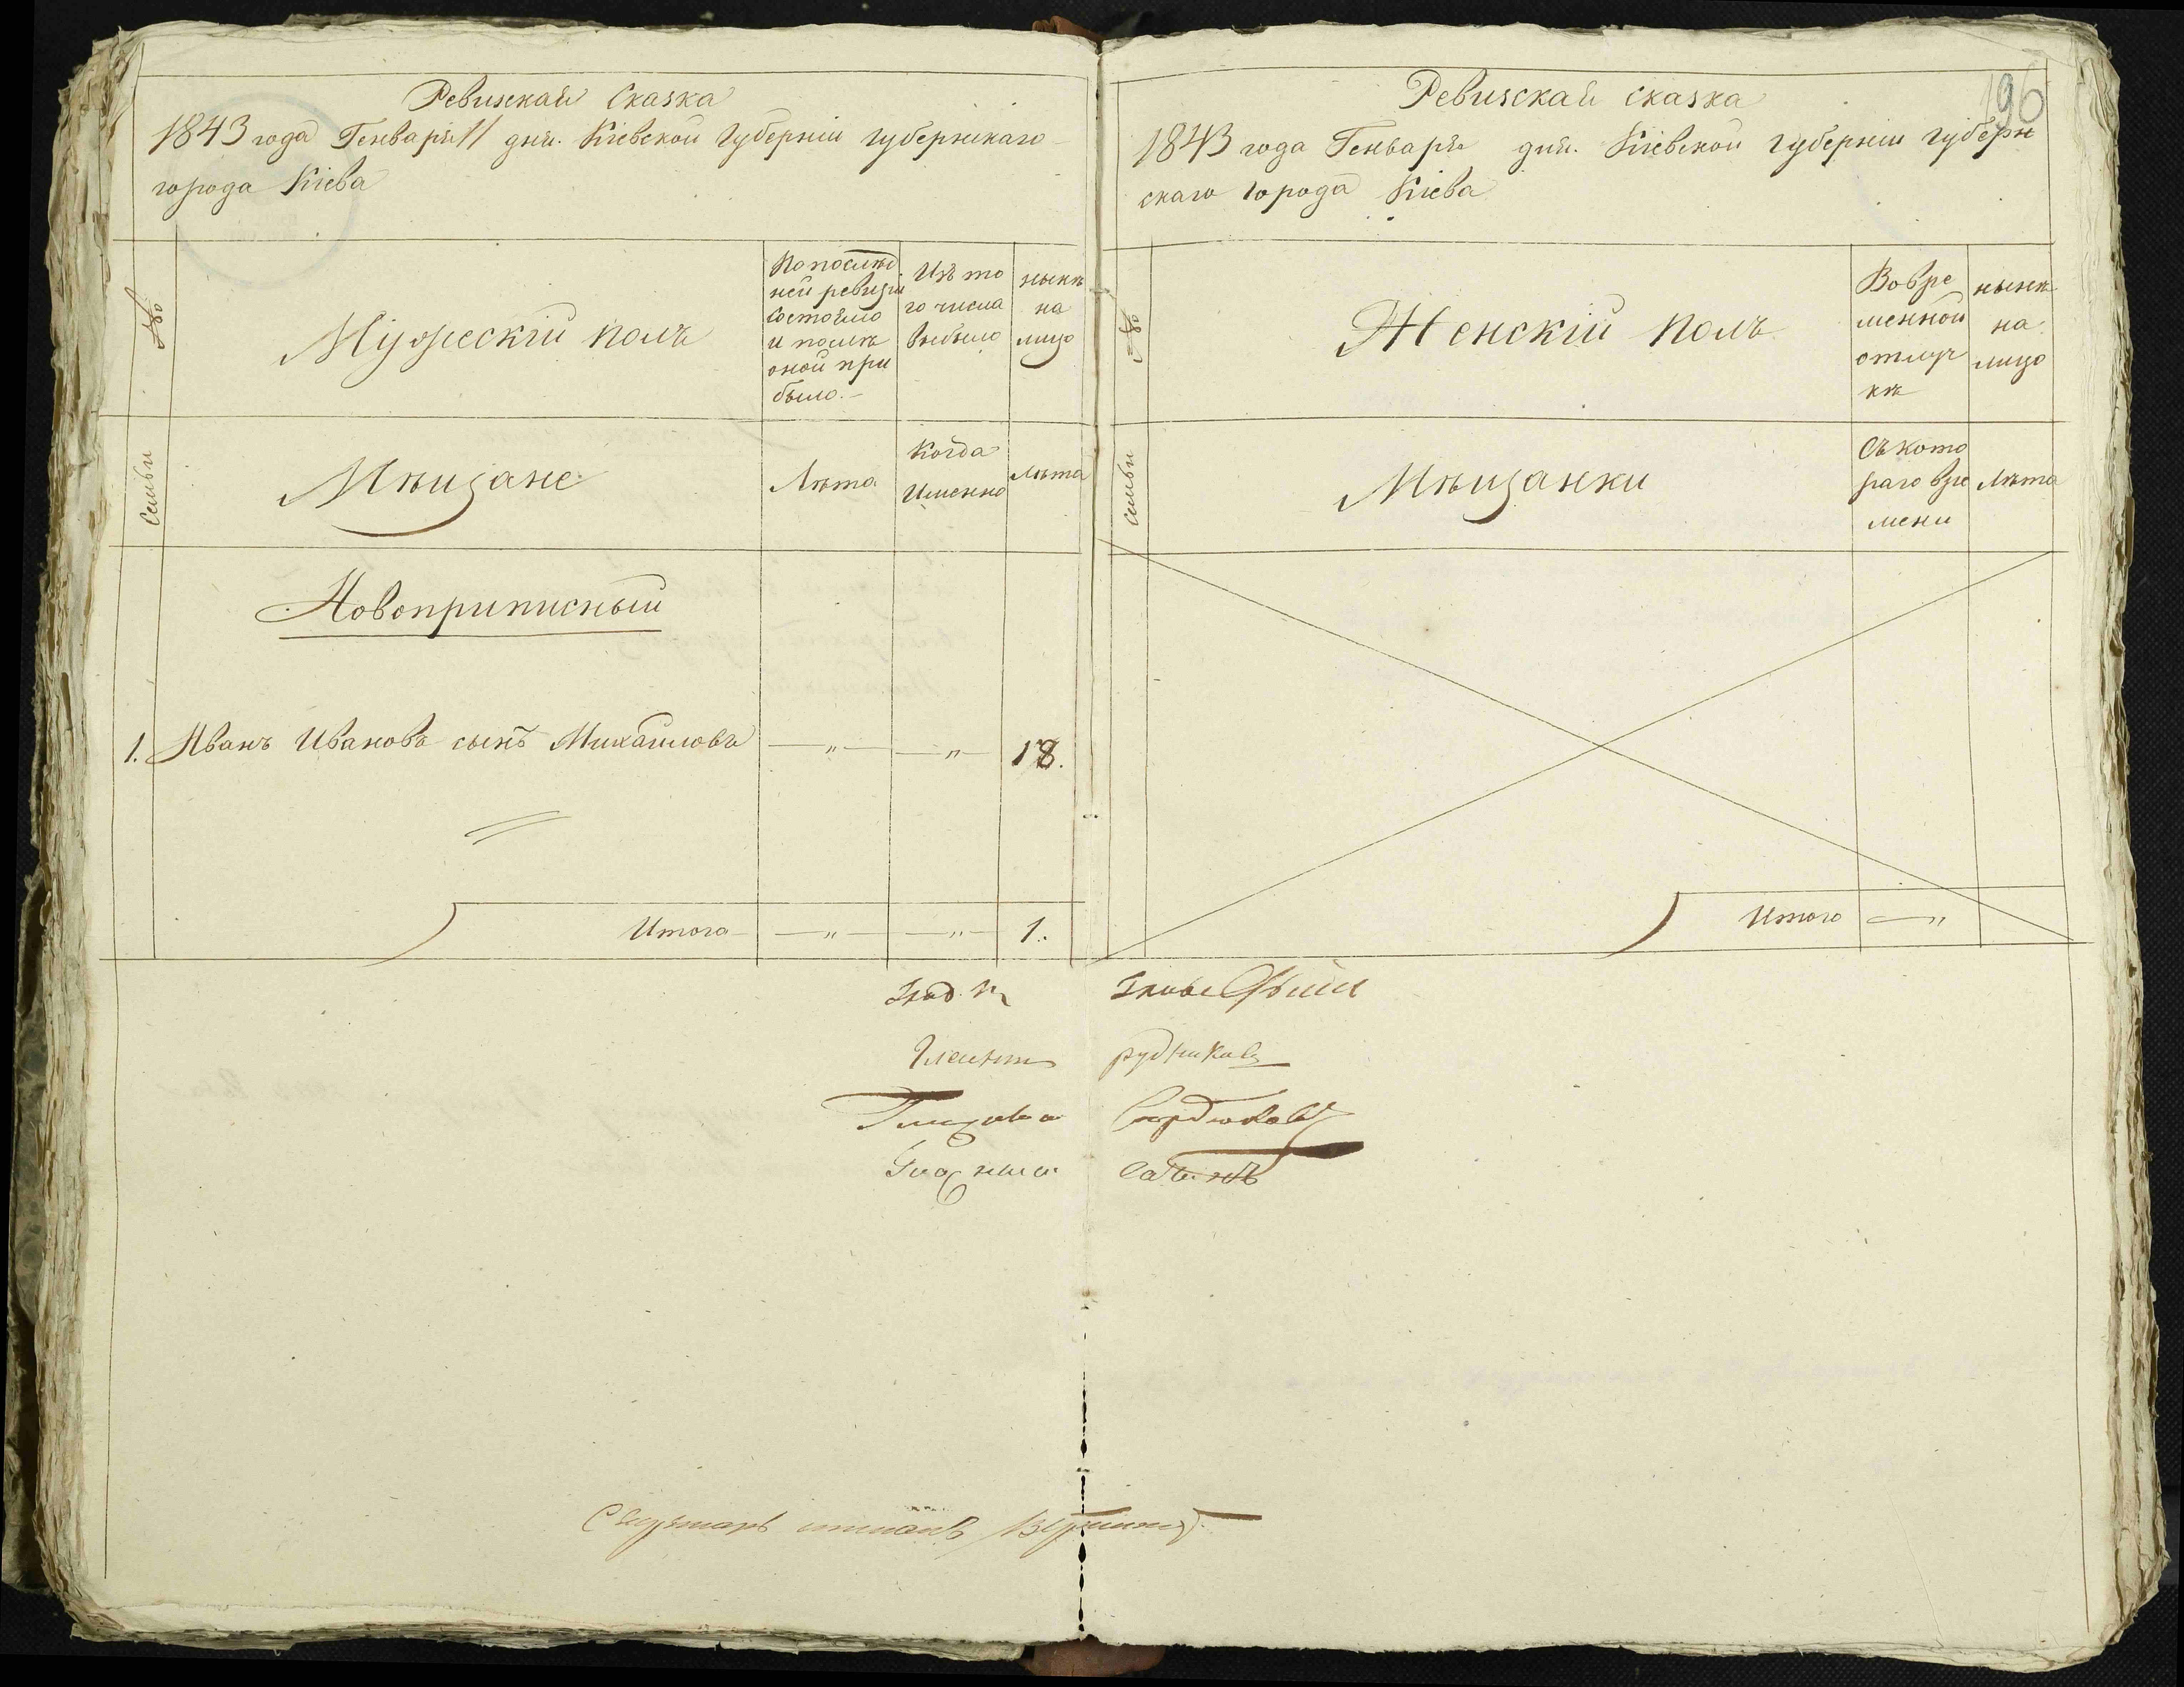 Ревизская Сказка
1843 года Генваря 11 дня. Кіевской Губерніи губернскаго
города Кіева
№
Мужескій полъ
По послѣд
ней ревизіи
состояло
и послѣ
оной при
было.
Изъ то
го числа
выбыло
нынѣ
на
лицо
Семьи
Мѣщане
Лѣта
Когда
Именно
Лѣта
Новоприписный
1. Иванъ Ивановъ сынъ Михайловъ — „ — — „ — 18.
Итого — „ — — „ — 1.
196
Ревизская сказка
1843 года Генваря дня. Кіевской губерніи губерн
скаго города Кіева
№
Женскій полъ
Во вре
менной
отлуч
кѣ
нынѣ
на
лицо
Семьи
Мѣщанки
Съ кото
раго вре
мени
Лѣта
Итого — „
Рудниковъ
Сердюковъ